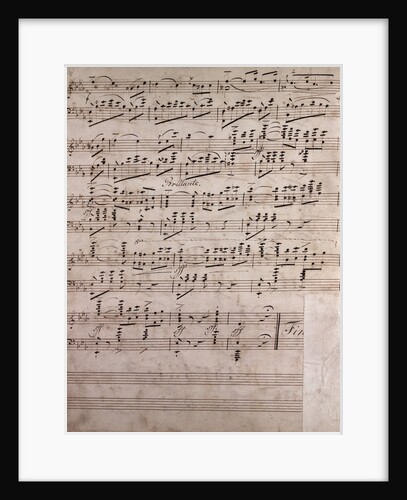 Brillante.
ff
ff
ff ff fff Fin